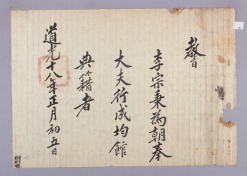 教旨
李宗秉為朝奉
大夫行成均館
典籍者
道光十八年正月初五日